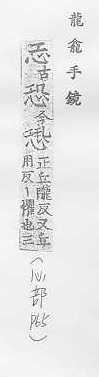 龍龕手鏡
𢙁古恐今恐正丘隴反又丘
用反ー懼也三
(心部
P65)